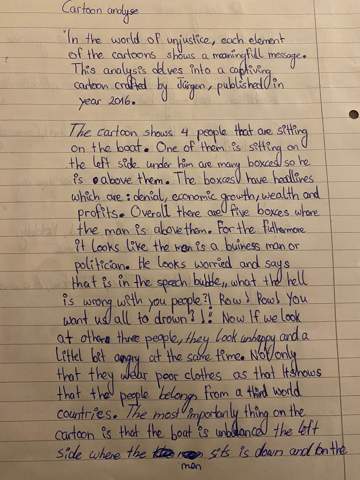 Cartoon analyse
In the world of unjustice, each element
of the cartoons shows a meaningfull message.
This analysis delves into a captiving
cartoon crafted by Jürgen, published in
year 2016.
The cartoon shows 4 people that are sitting
on the boat. One of them is sitting on
the left side under him are many boxces so he
is above them. The boxces have headlines
which are : denial, economic growth, wealth and
profits. Overall there are five boxes where
the man is above them. For the futhermore
it looks like the man is a buiness man or
politician. He looks worried and says
that is in the speech bubble,, what the hell
is wrong with you people?! Row! Row! You
want us all to drown?!! Now If we look
at others three people, they look unhappy and a
littel bit angry at the same time. Not only
that they wear poor clothes as that Itshows
that the people belongs from a third world
countries. The most importanly thing on the
cartoon is that the boat is unbalanced the left
side where the man sits is down and on the